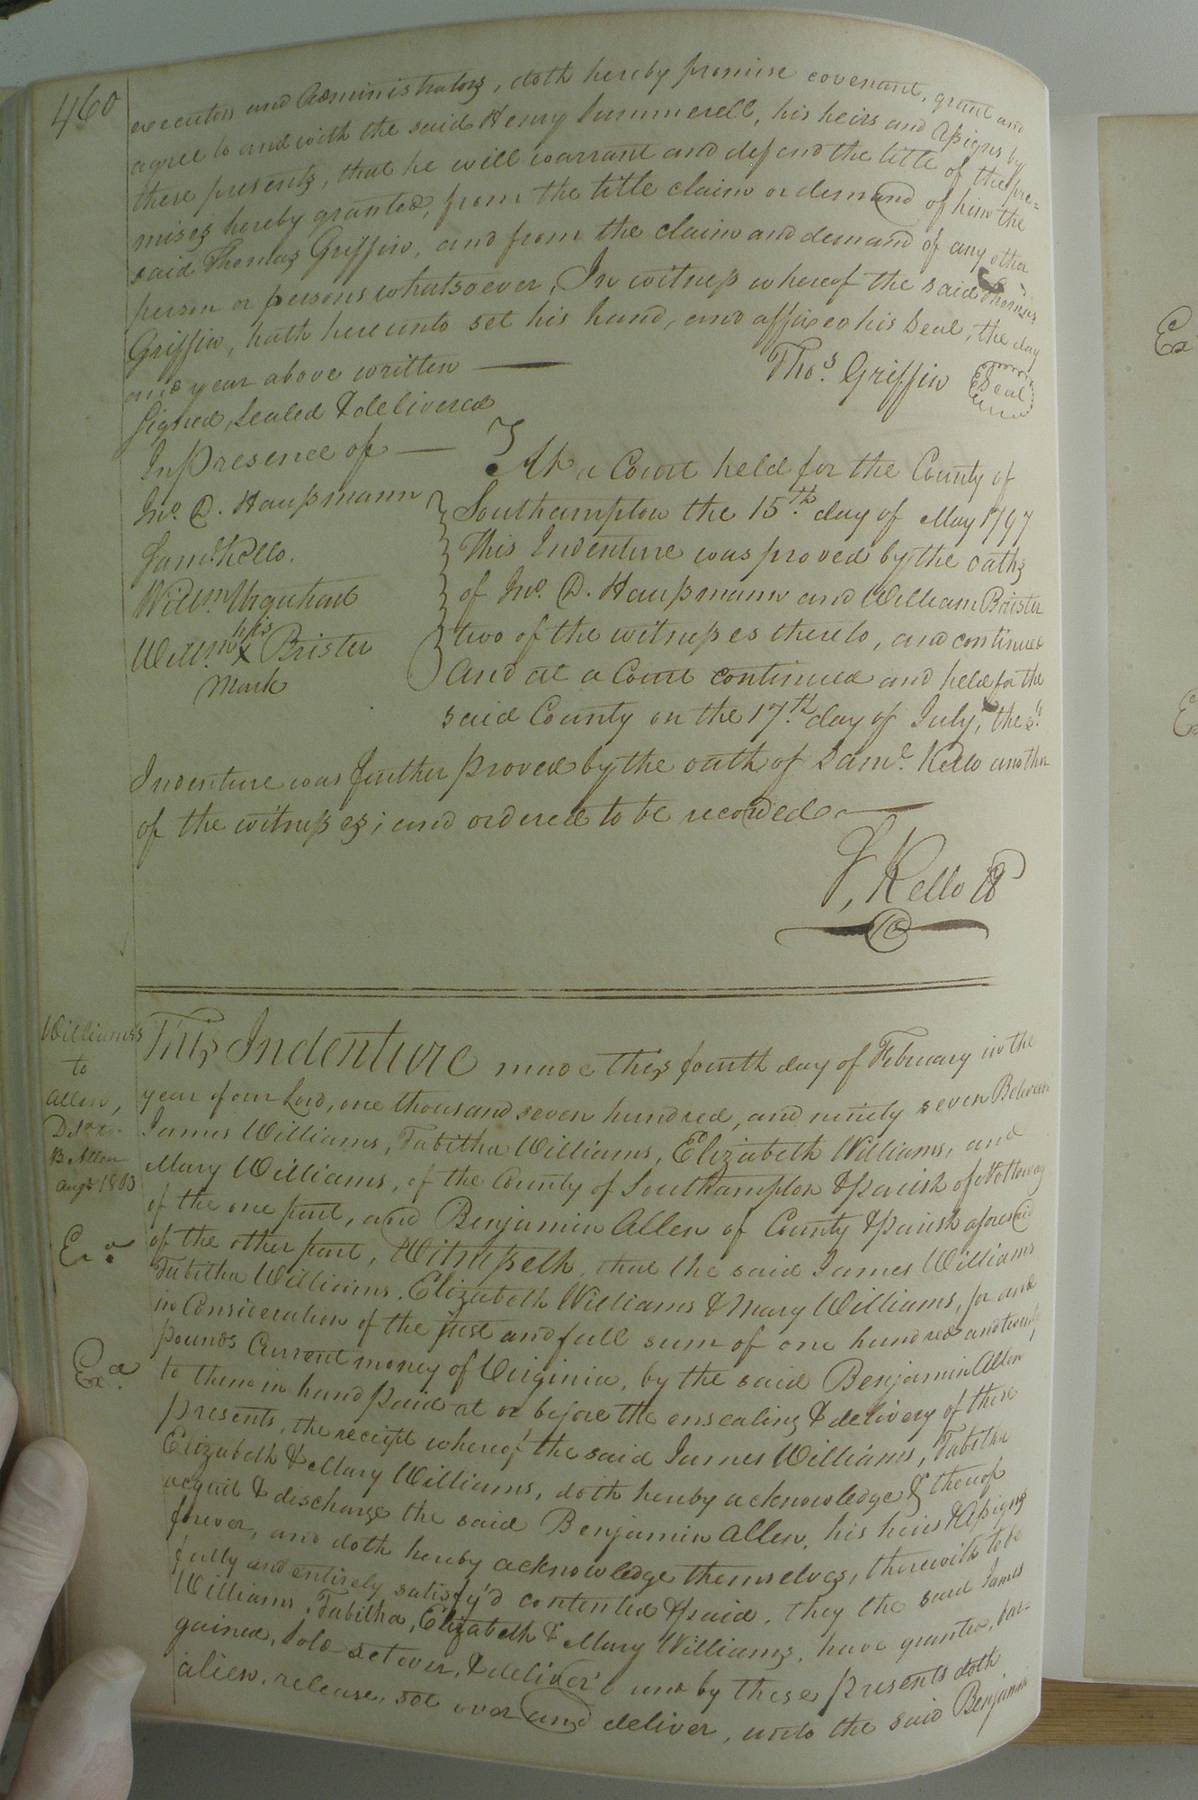 460
executors and Administrators, doth hereby promise covenant, grant and
agree to and with the said Henry Summerell, his heirs and Assigns by
these presents, that he will warrant and defend the title of the pre=
mises hereby granted, from the title claim or demand of him the
said Thomas Griffin, and from the claim and demand of any other
person or persons whatsoever, In witness whereof the said Thomas
Griffin, hath hereunto set his hand, and affixed his Seal, the day
and year above written
Thos. Griffin Seal
Signed, Sealed & delivered
In presence of
Jno. D. Haussmann
Saml. Kello.
Willm. Urquhart
Willm. his X Brister
Mark
At a Court held for the County of
Southampton the 15th. day of May 1797
This Indenture was proved by the oaths
of Jno. D. Haussmann and William Brister
two of the witnesses thereto, and continued
And at a Court continued and held for the
said County on the 17th. day of July, the sd.
Indenture was further proved by the oath of Saml. Kello another
of the witnesses; and ordered to be recorded
Kello
Williams's
to
Allen,
B. Allen
Augt 1803
Exd.
Exd.
This Indenture made this fourth day of February in the
year of our Lord, one thousand seven hundred, and ninety seven Between
James Williams, Tabitha Williams, Elizabeth Williams, and
Mary Williams, of the County of Southampton & Parish of Nottoway
of the one part, and Benjamin Allen of County & parish aforesaid
of the other part, Witnesseth, that the said James Williams
Tabitha Williams, Elizabeth Williams & Mary Williams, for and
in Consideration of the just and full sum of one hundred and twenty
pounds Current money of Virginia, by the said Benjamin Allen
to them in hand paid at or before the ensealing & delivery of these
presents, the receipt whereof the said James Williams, Tabitha
Elizabeth & Mary Williams, doth hereby acknowledge & thereof
acquit & discharge the said Benjamin Allen, his heirs & Assigns
forever, and doth hereby acknowledge themselves, therewith to be
fully and entirely satisfy'd contented & paid, they the said James
Williams, Tabitha, Elizabeth & Mary Williams, have granted, bar=
gained, sold set over, & deliver'd and by these presents doth
alien, release, set over and deliver, unto the said Benjamin